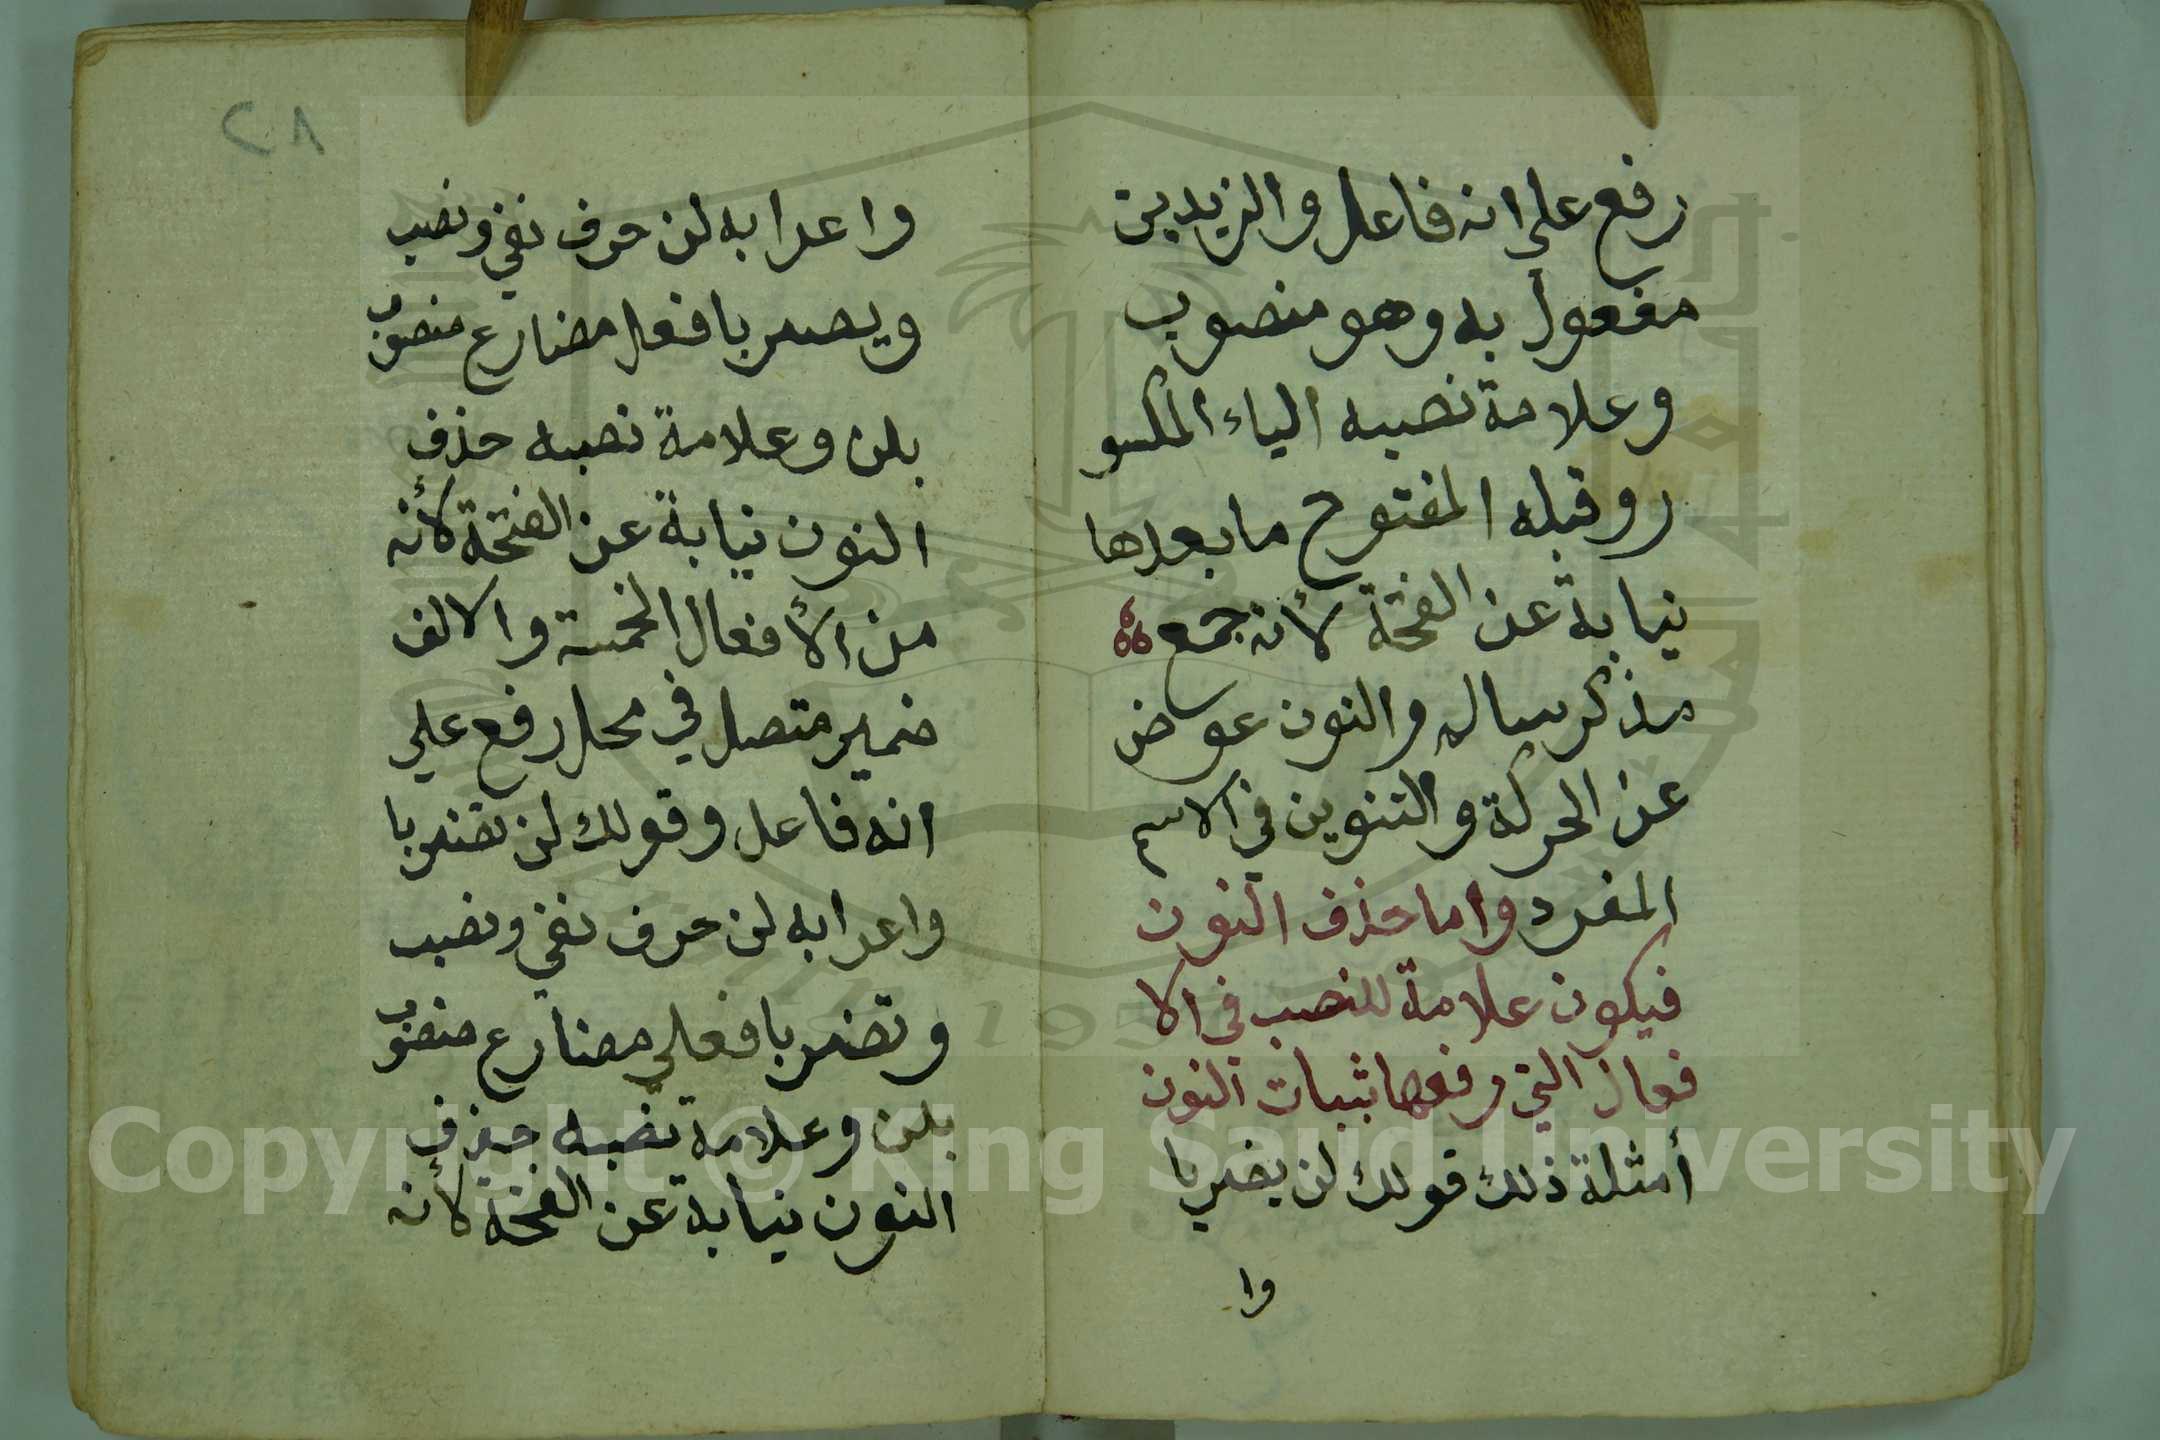 رفع على انه فاعل والزيدين
مفعول به وهو منصوب
وعلامة نصبه الياء المكسو
ر وقبله المفتوح ما بعدها
نيابة عن الفتحة لأنه جمع
مذكر سالم والنون عوض
عن الحركة والتنوين في الاسم
المفرد واما حذف النون
فيكون علامة للنصب في الا
فعال التي رفعها بثبات النون
أمثلة ذلك قولك لن يضربا
وا
٢٨
واعرابه لن حرف نفي ونصب
ويضربا فعل مضارع منصوب
بلن وعلامة نصبه حذف
النون نيابة عن الفتحة لأنه
من الأفعال الخمسة والالف
ضمير متصل في محل رفع على
انه فاعل وقولك لن تضربا
واعرابه لن حرف نفي ونصب
وتضربا فعل مضارع منصوب
بلن وعلامة نصبه حذف
النون نيابة عن الفتحة لأنه
Copyright © King Saud University
1957